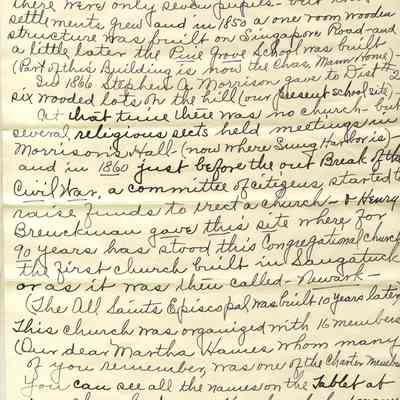 there were only seven pupils - but
settlements grew and in 1850 a one room wooden
structure was built on Singapore Road - and
a little later the Pine Grove School was built
(Part of this Building is now the Chas. Mann Home) -
In 1866 Stephen A Morrison gave to Dist #2
six wooded lots on the hill (our present school site) -
At that time there was no church - but
several religious sects held meetings in
Morrison's Hall - (now where Swing Harbor is) -
and in 1860 just before the out Break of the
Civil War, a committee of citizens, started to
raise funds to erect a church - & Henry
Breuckman gave this site where for
90 years has stood this Congregational Church
the first church built in Saugatuck
or as it was then called - Newark -
(The All Saints Episcopal was built 10 years later
This church was organized with 16 members
(Our dear Martha Hames whom many
of you remember, was one of the Charter members
You can see all the names on the Tablet at